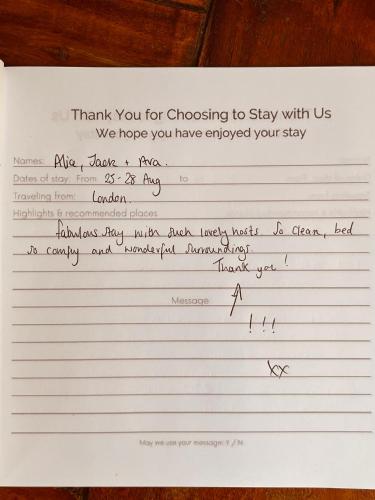 Thank You for Choosing to Stay with Us
We hope you have enjoyed your stay
Names: Alice, Jack + Ava.
Dates of stay: From 25-28 Aug to
Traveling from: London.
Highlights & recommended places
fabulous stay with such lovely hosts. So clean, bed
so comfy and wonderful surroundings.
Thank you!
Message
!!!
xx
May we use your message: Y / N